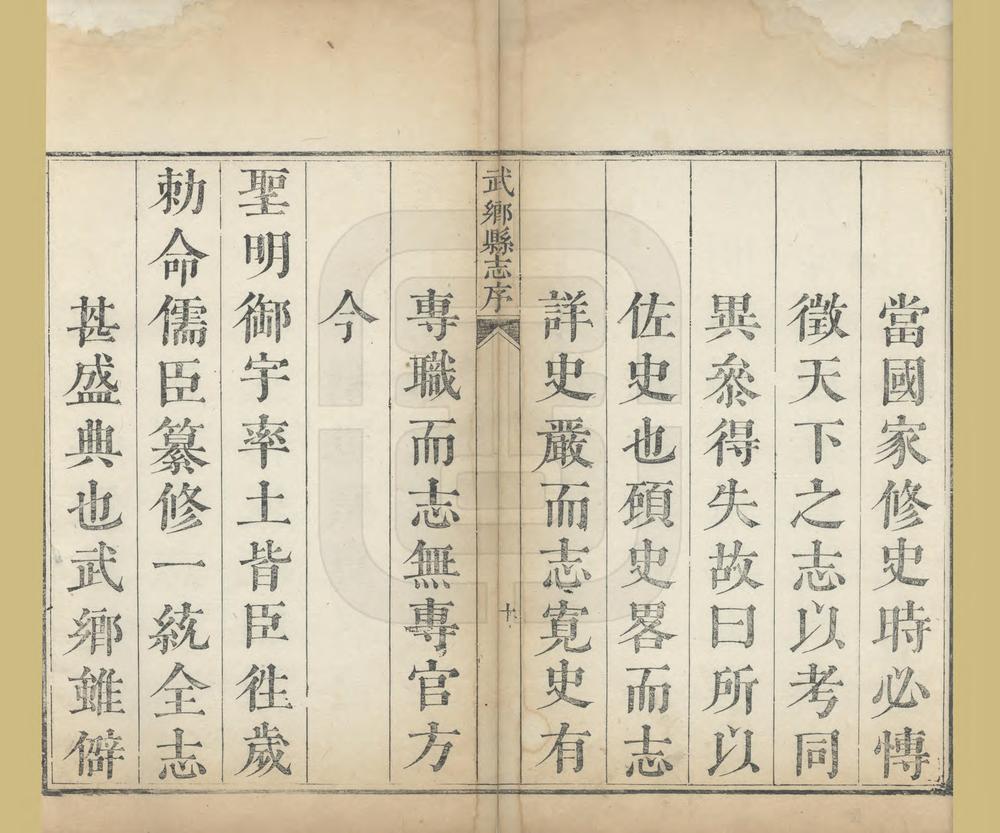 當國家修史時必愽
徵天下之志以考同
異叅得失故曰所以
佐史也碩史畧而志
詳史嚴而志寛史有
武鄉縣志序
十
專職而志無專官方
今
聖明御宇率土皆臣徃歲
勅命儒臣纂修一統全志
甚盛典也武鄉雖僻